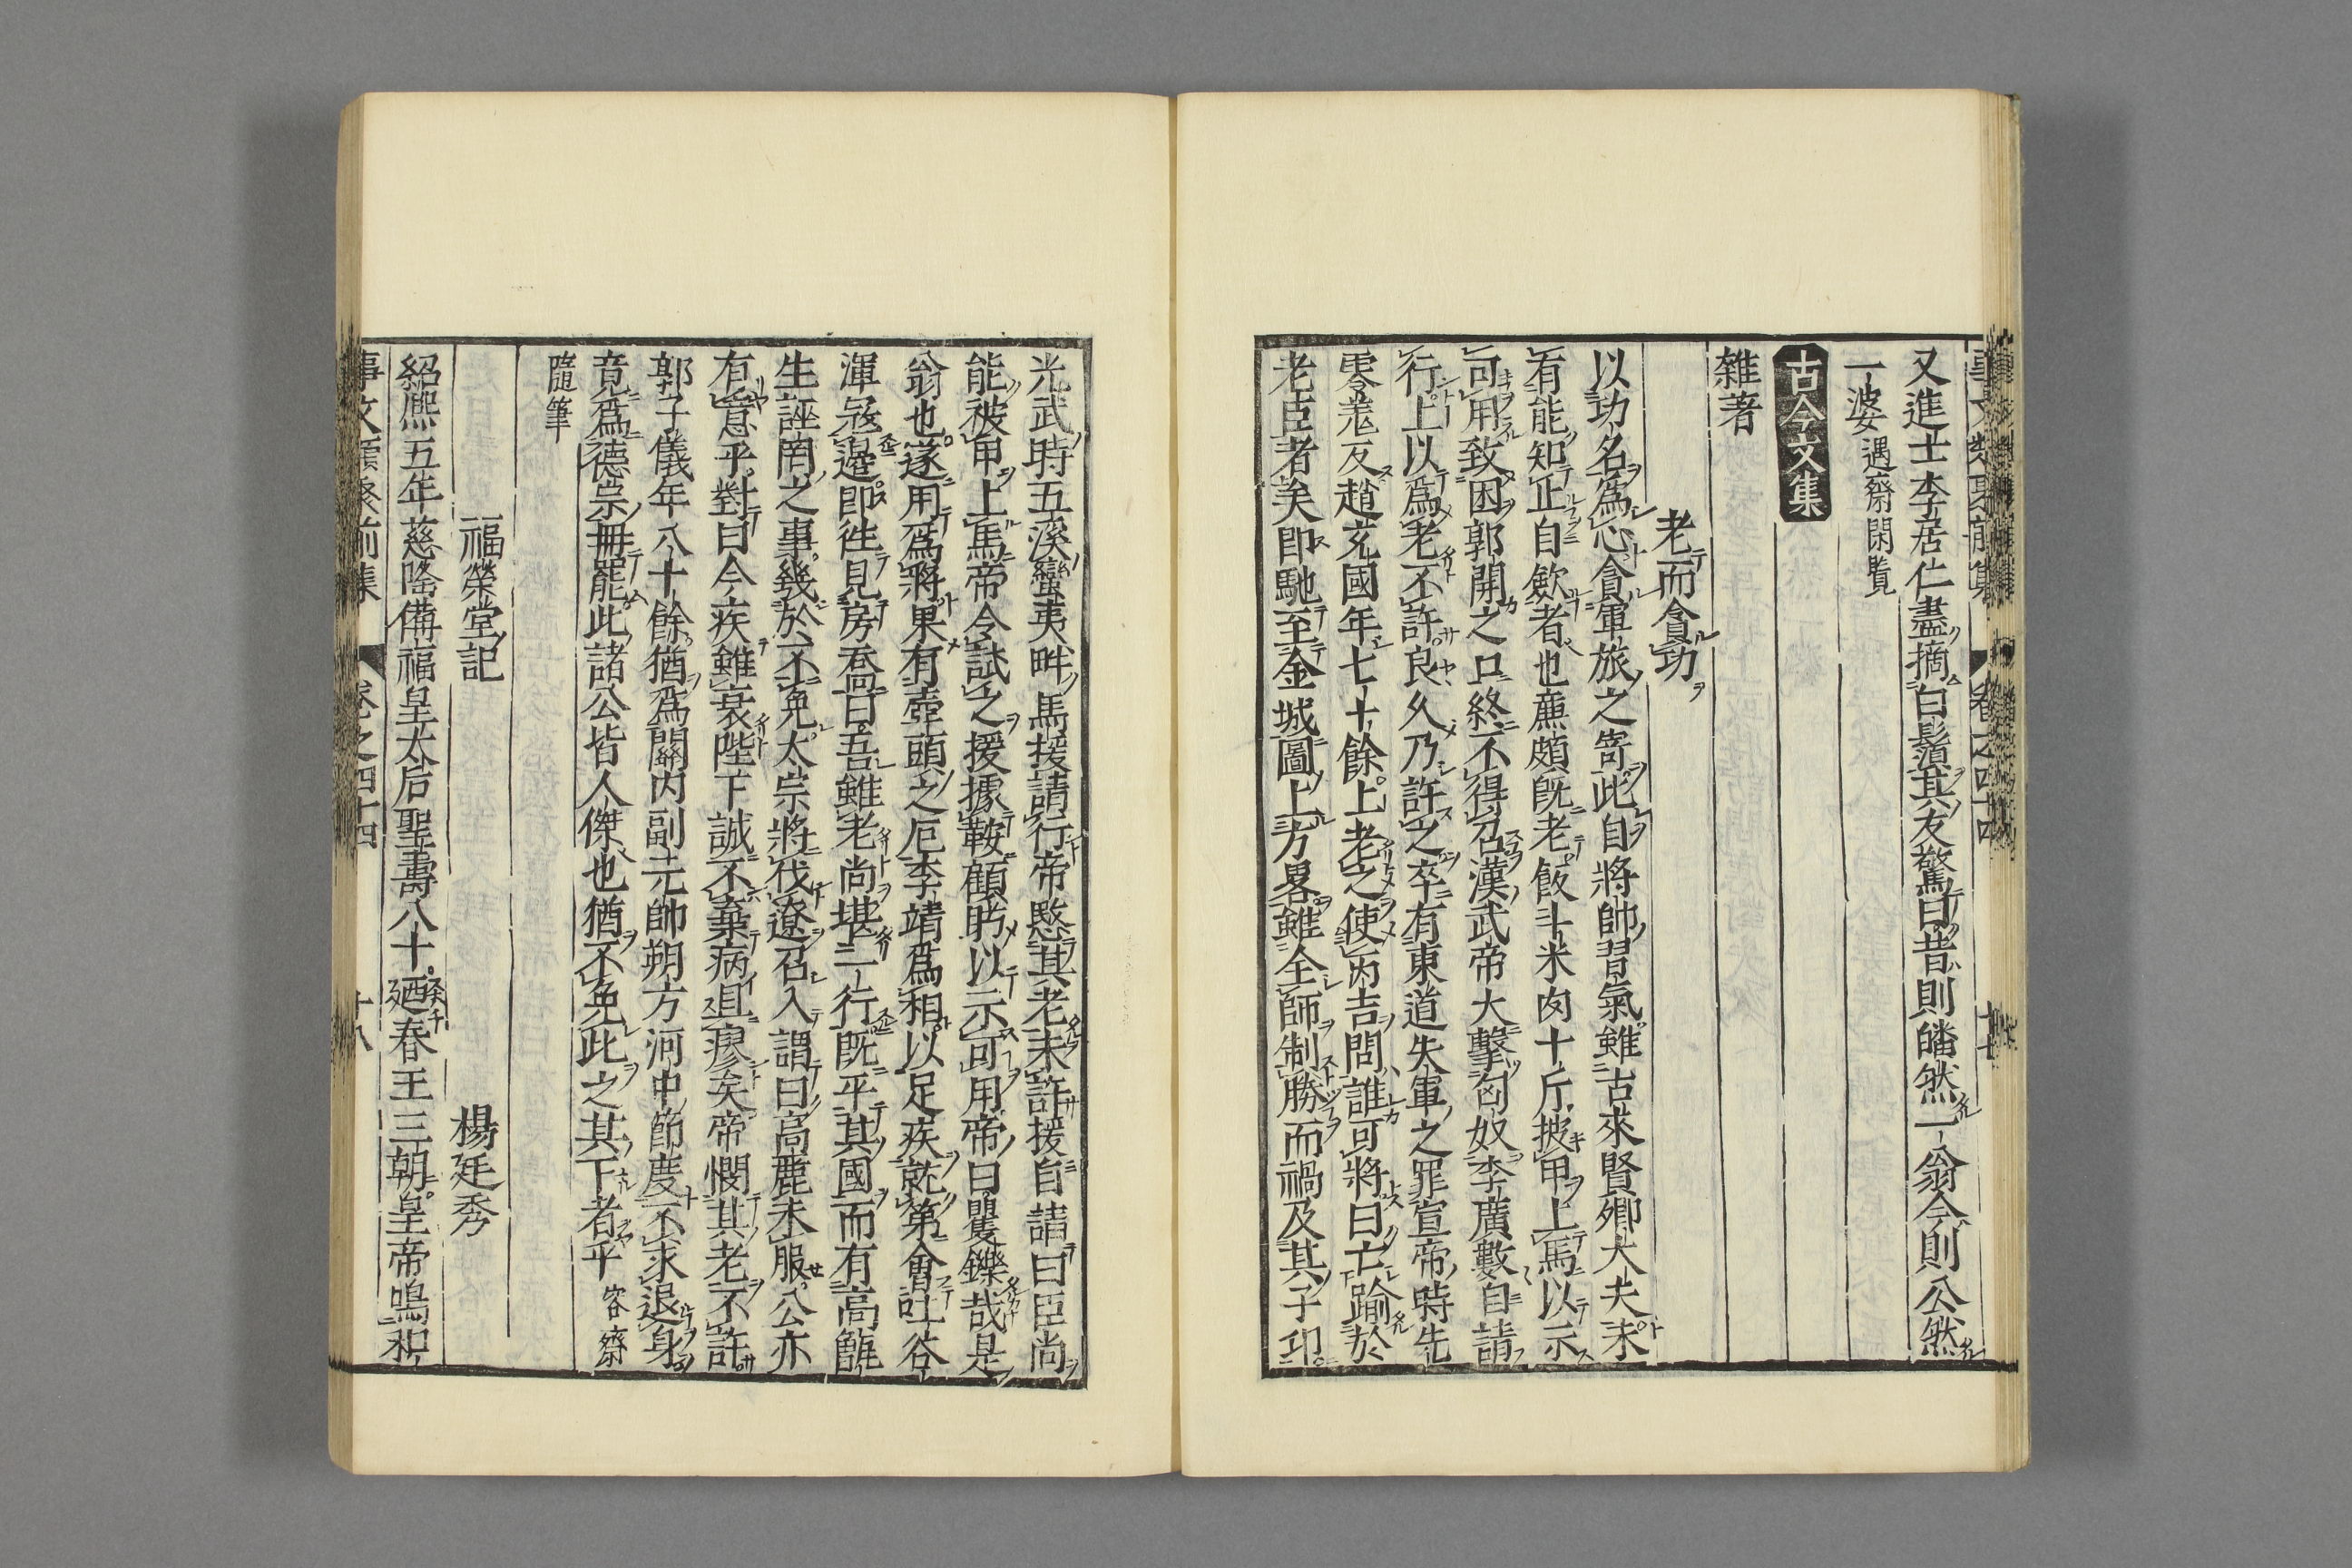 又進士李居仁盡摘白鬚其友驚曰昔則皤然一翁今則公然
一婆 遇齋閑覽
古今文集
雜著
老而貪功
以功名爲心貪軍旅之寄此自將帥習氣雖古來賢卿大夫未
有能知止自歛者也廉頗既老飯斗米肉十斤披甲上馬以示
可用致困郭開之口終不得召漢武帝大擊匈奴李廣數自請
行上以爲老不許良久乃許之卒有東道失軍之罪宣帝時先
零羗反趙充國年七十餘上老之使丙吉問誰可將曰亡踰於
老臣者矣即馳至金城圖上方畧雖全師制勝而禍及其子卬
光武時五溪蠻夷畔馬援請行帝愍其老未許援自請曰臣尚
能被甲上馬帝令試之援據鞍顧眄以示可用帝曰矍鑠哉是
翁也遂用爲將果有壺頭之厄李靖爲相以足疾就第會吐谷
渾冦邉即徃見房喬曰吾雖老尚堪一行既平其國而有高甑
生誣罔之事幾於不免太宗將伐遼召入謂曰高麗未服公亦
有意乎對曰今疾雖衰陛下誠不棄病且瘳矣帝憫其老不許
郭子儀年八十餘猶爲關内副元帥朔方河中節度不求退身
竟爲德宗冊罷此諸公皆人傑也猶不免此之其下者乎 容齋
隨筆
福榮堂記
楊廷秀
紹熈五年慈隆備福皇太后聖壽八十廼春王三朝皇帝鳴和
事文類聚前集 卷之四十四 十八